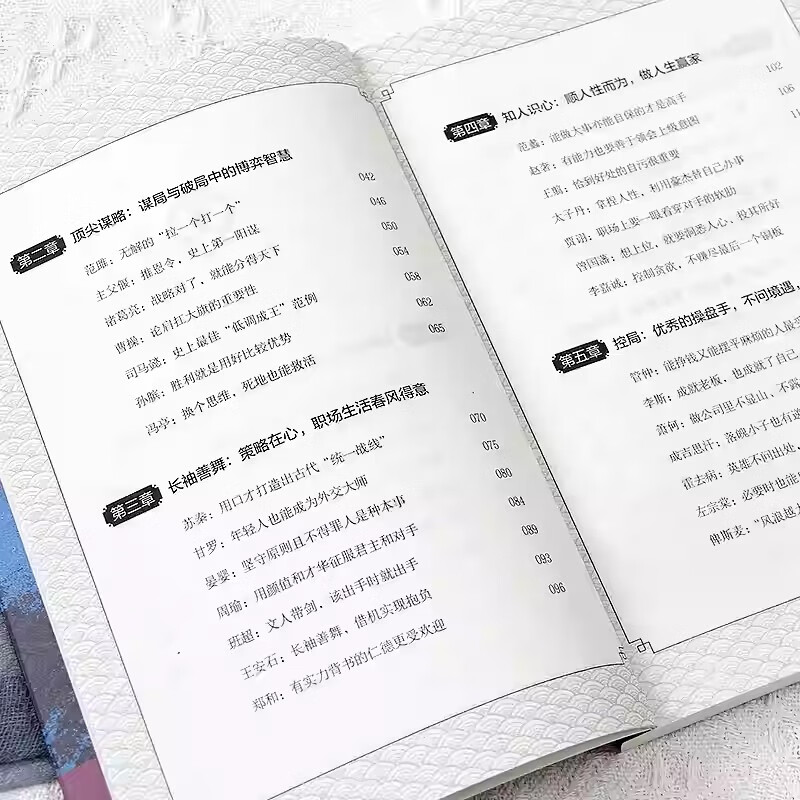 第二章 顶尖谋略：谋局与破局中的博弈智慧
范雎：无解的“拉一个打一个” 042
主父偃：推恩令，史上第一阳谋 046
诸葛亮：战略对了，就能分得天下 050
曹操：论肩扛大旗的重要性 054
司马懿：史上最佳“低调成王”范例 058
孙膑：胜利就是用好比较优势 062
冯亭：换个思维，死地也能救活 065
第三章 长袖善舞：策略在心，职场生活春风得意
苏秦：用口才打造出古代“统一战线” 070
甘罗：年轻人也能成为外交大师 075
晏婴：坚守原则且不得罪人是种本事 080
周瑜：用颜值和才华征服君主和对手 084
班超：文人带剑，该出手时就出手 089
王安石：长袖善舞，借机实现抱负 093
郑和：有实力背书的仁德更受欢迎 096
第四章 知人识心：顺人性而为，做人生赢家
范蠡：能做大事亦能自保的才是高手 102
赵奢：有能力也要善于领会上级意图 106
王翦：恰到好处的自污很重要
太子丹：拿捏人性，利用豪杰替自己办事
贾诩：职场上要一眼看穿对手的软肋
曾国藩：想上位，就要洞悉人心，投其所好
李嘉诚：控制贪欲，不赚尽最后一个铜板
第五章 控局：优秀的操盘手，不问境遇，
管仲：能挣钱又能摆平麻烦的人最
李斯：成就老板，也成就了自己
萧何：做公司里不显山、不露
成吉思汗：落魄小子也有逆
霍去病：英雄不问出处，
左宗棠：必要时也能
俾斯麦：“风浪越